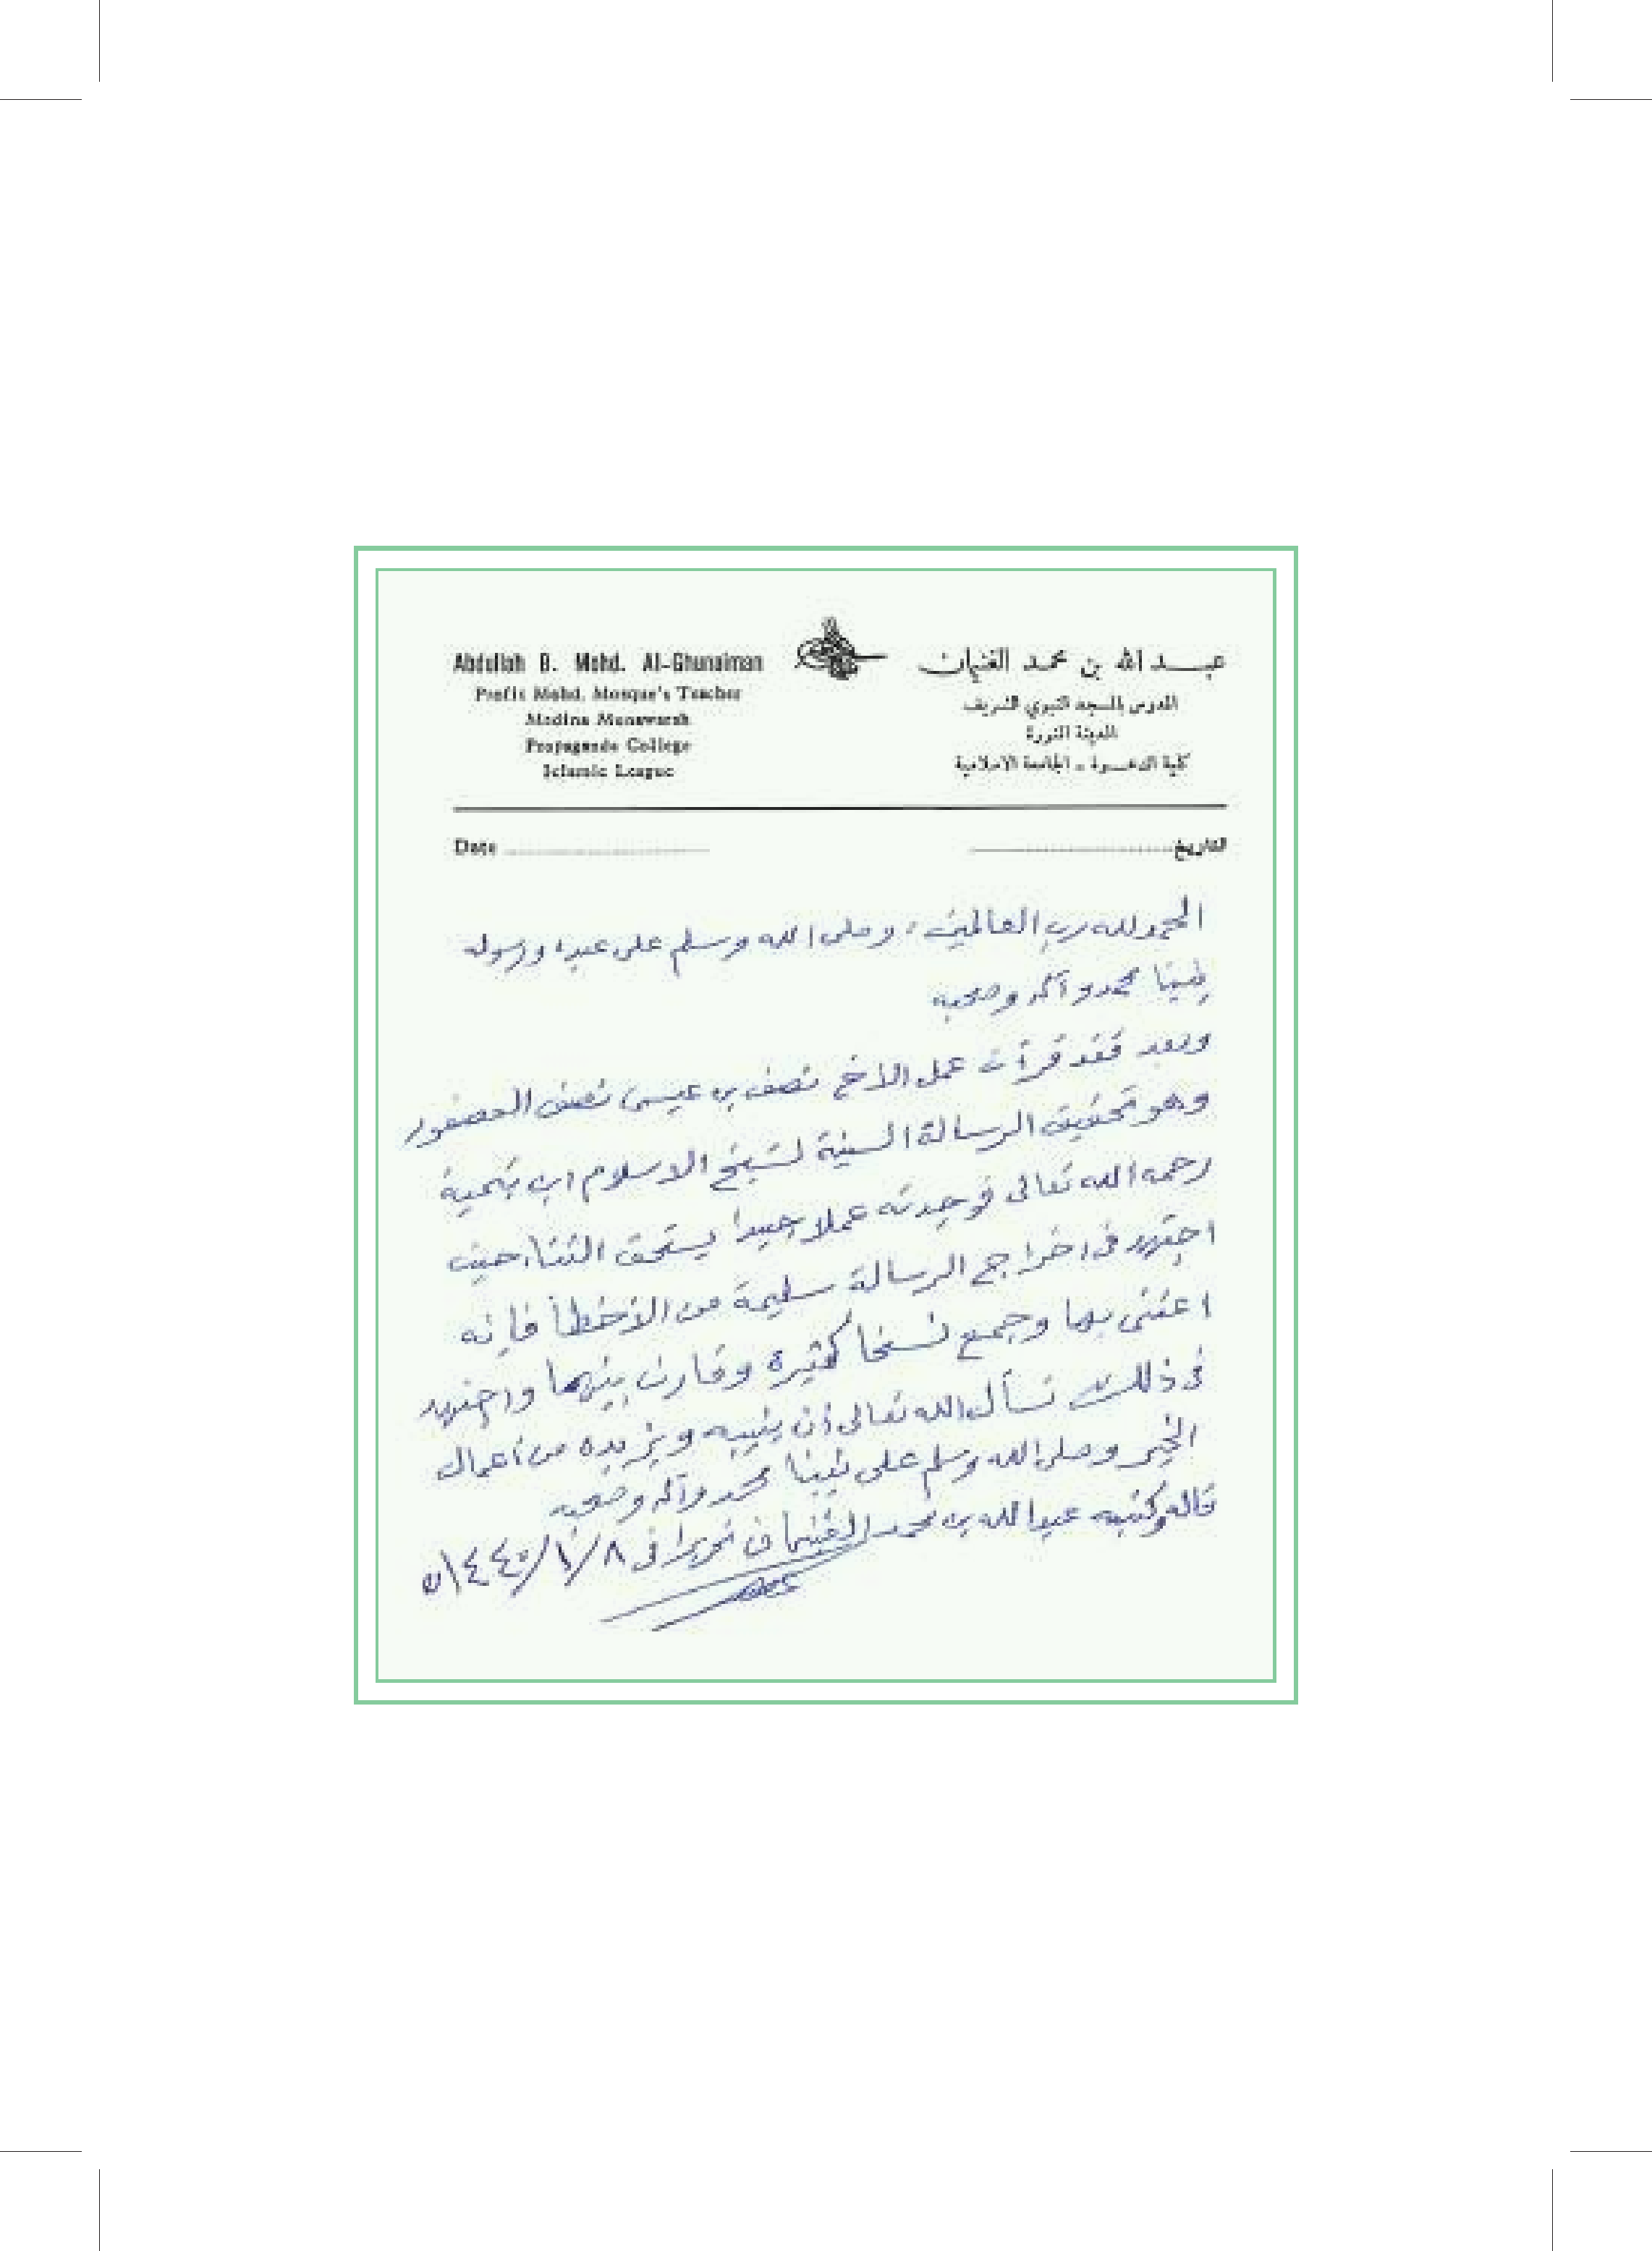 عبد الله بن محمد الغنيمان
المدرس بالمسجد النبوي الشريف
المدينة المنورة
كلية الدعوة - الجامعة الاسلامية
Abdullah B. Mohd. Al-Ghunaiman
Profit Mohd. Mosque's Teacher
Madina Munawarah
Propaganda College
Islamic League
التاريخ
Date
الحمد لله رب العالمين، وصلى الله وسلم على عبده ورسوله
نبينا محمد وآله وصحبه
وبعد فقد قرأت عمل الأخ نصف بن عيسى نصف العصفور
وهو تحقيق الرسالة السنية لشيخ الاسلام ابن تيمية
رحمه الله تعالى فوجدته عملا جيدا يستحق الثناء حيث
اجتهد في اخراج الرسالة سليمة من الأخطأ فإنه
اعتنى بها وجمع نسخا كثيرة وقارن بينهما واجتهد
في ذلك نسأل الله تعالى أن يثيبه ويزيده من أعمال
الخير وصلى الله وسلم على نبينا محمد وآله وصحبه
قاله وكتبه عبد الله بن محمد الغنيمان تحريرا في ٨/١/١٤٤٠ه